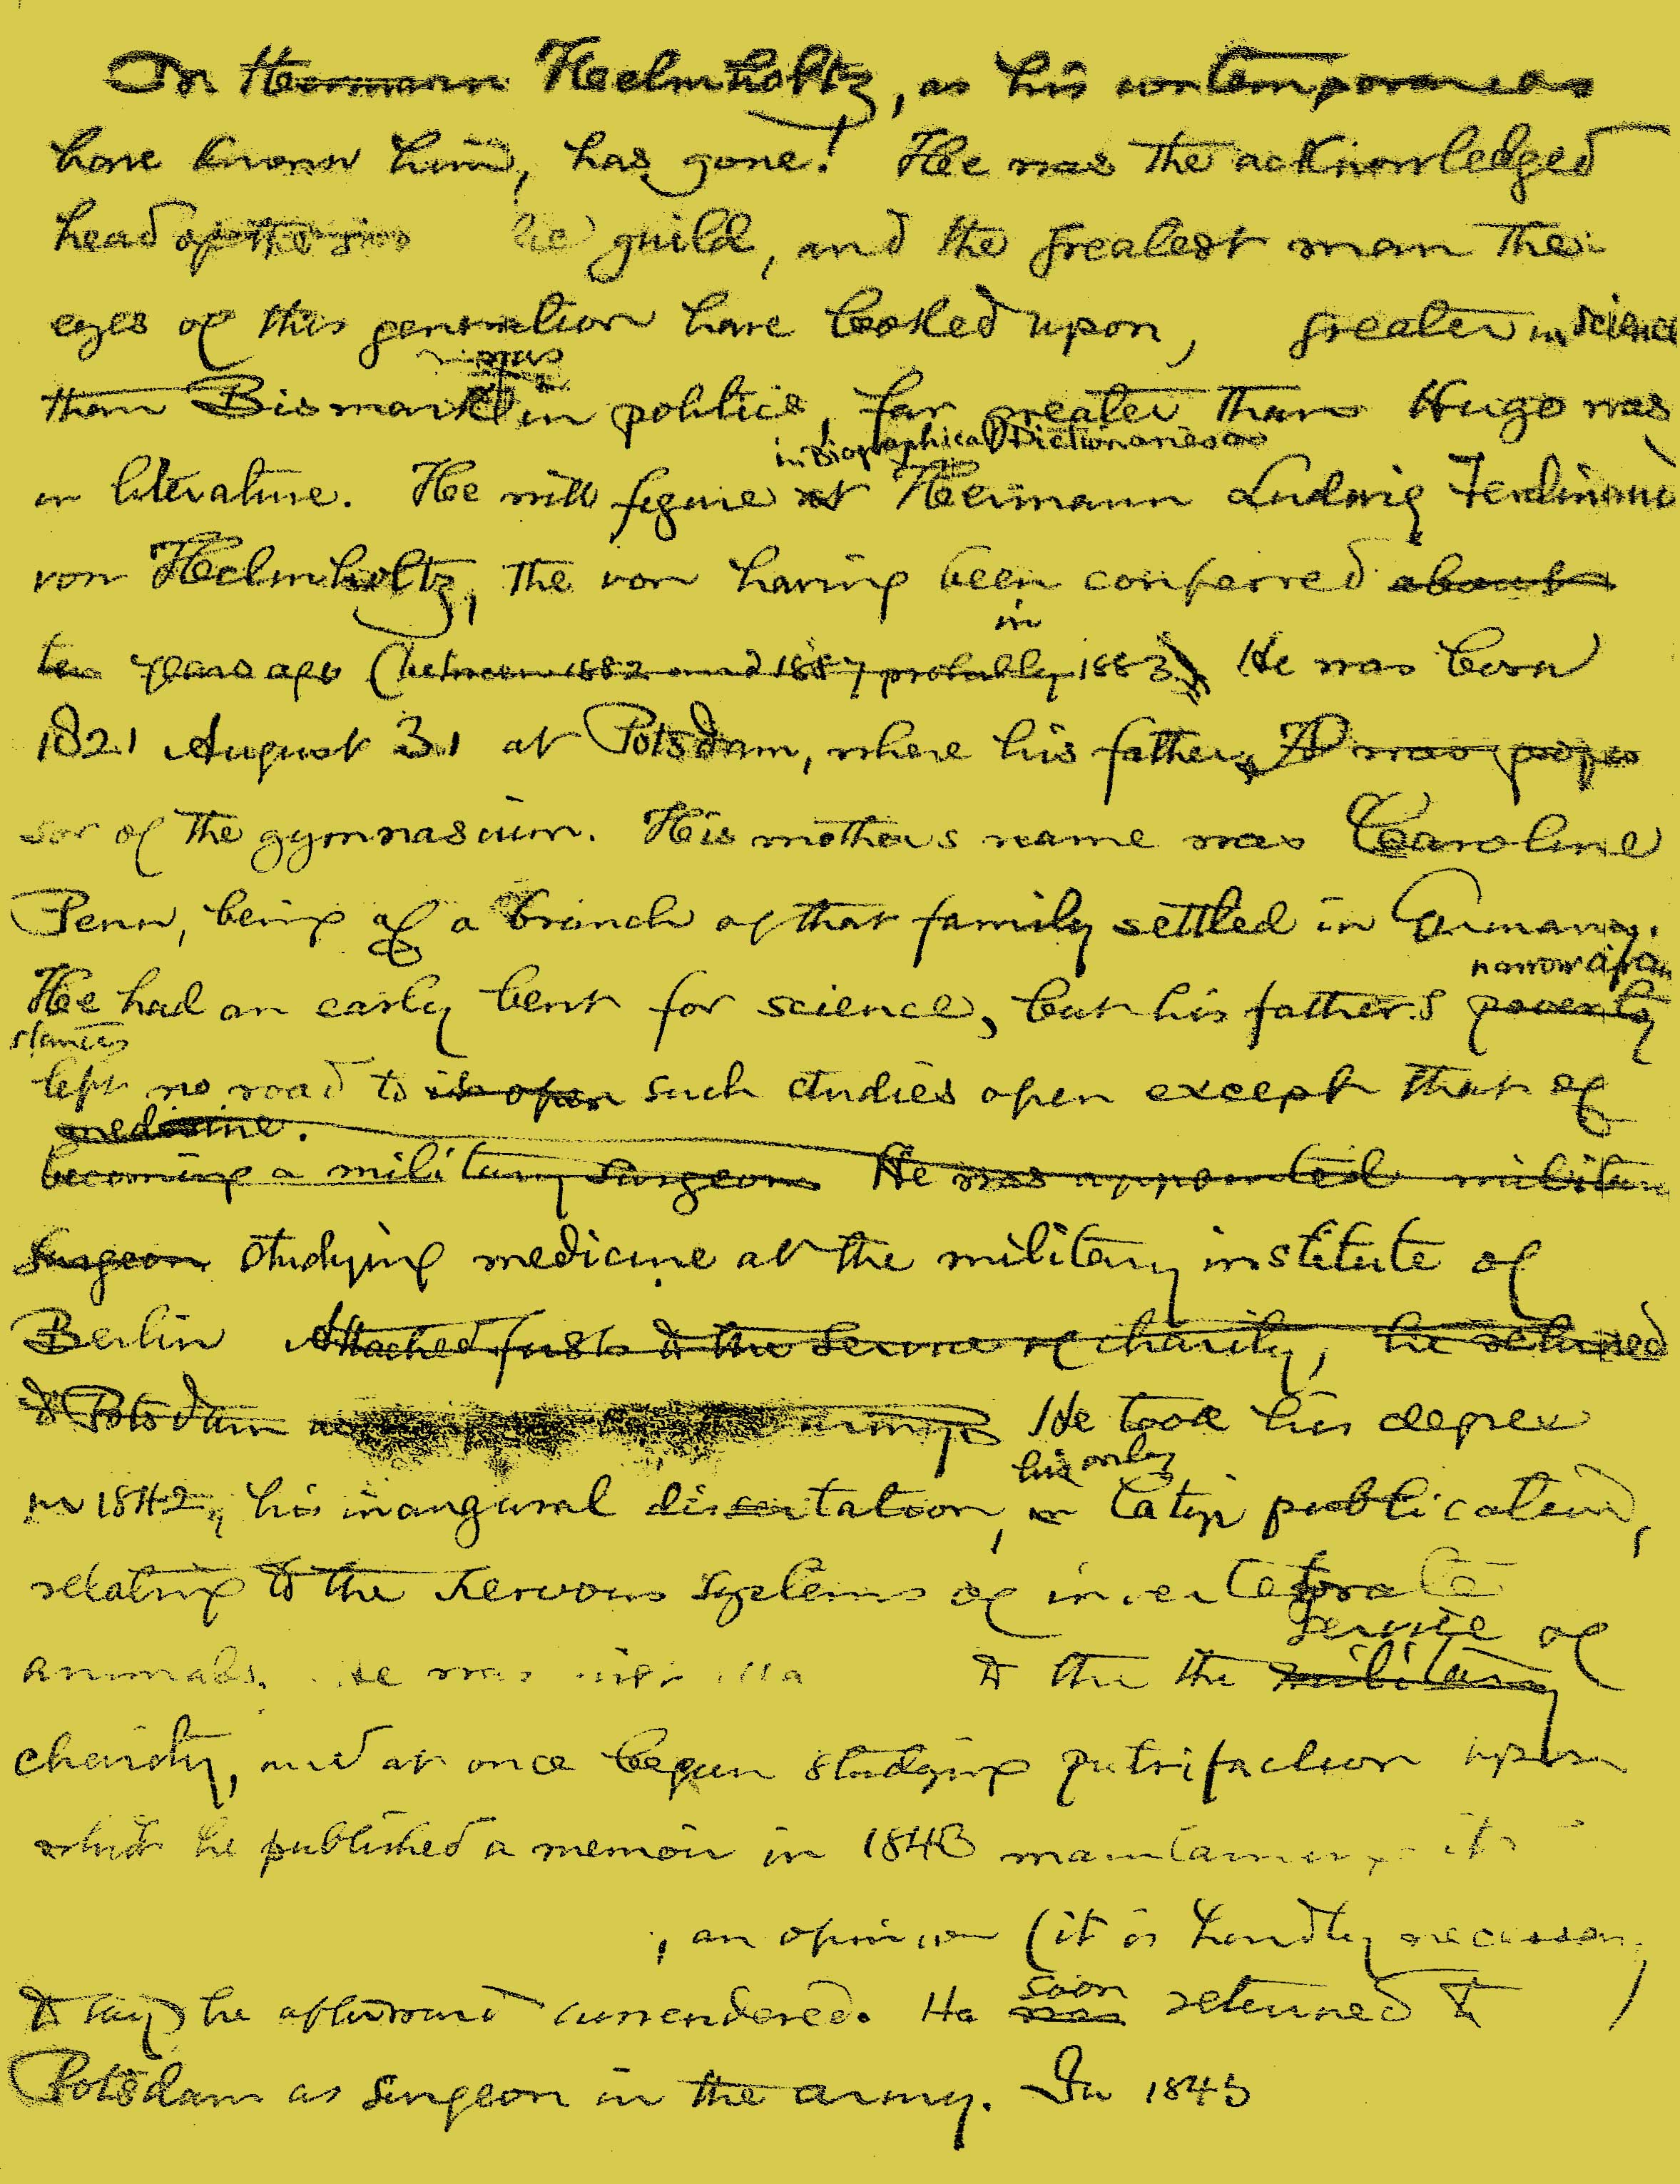 Dr. Hermann Helmholtz, as his contemporaries
have known him, has gone! He was the acknowledged
head of the guild, and the greatest man the
eyes of this generation have looked upon, greater in science
was
than Bismark in politics, far greater than Hugo was
in Biographical Dictionaries as
in literature. He will figure Hermann Ludwig Ferdinand
von Helmholtz, the von having been conferred about
in
ten years ago (between 1882 and 1887 probably 1883) He was born
1821 August 31 at Potsdam, where his father was profes
sor of the gymnasium. His mothers name was Caroline
Penn, being of a branch of that family settled in Germany.
narrow
He had an early bent for science, but his father's poverty
left no road to is open such studies open except that of
medicine.
becoming a military surgeon He was appointed military
surgeon studying medicine at the military institute of
Berlin Attached first to the service of charity, he returned
to Potsdam army He took his degree
his only
in 1842, his inaugural dissertation, Latin publication,
relating to the nervous systems of invertebrate
service of
animals. He was to the the military
charity, and at once began studying putrifaction upon
which he published a memoir in 1843 maintaining it
, an opinion (it is hardly necessary
to say) he afterward surrendered. He
soon
was returned to
Potsdam as surgeon in the army. In 1845